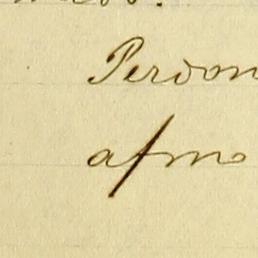 Perdon
afmo